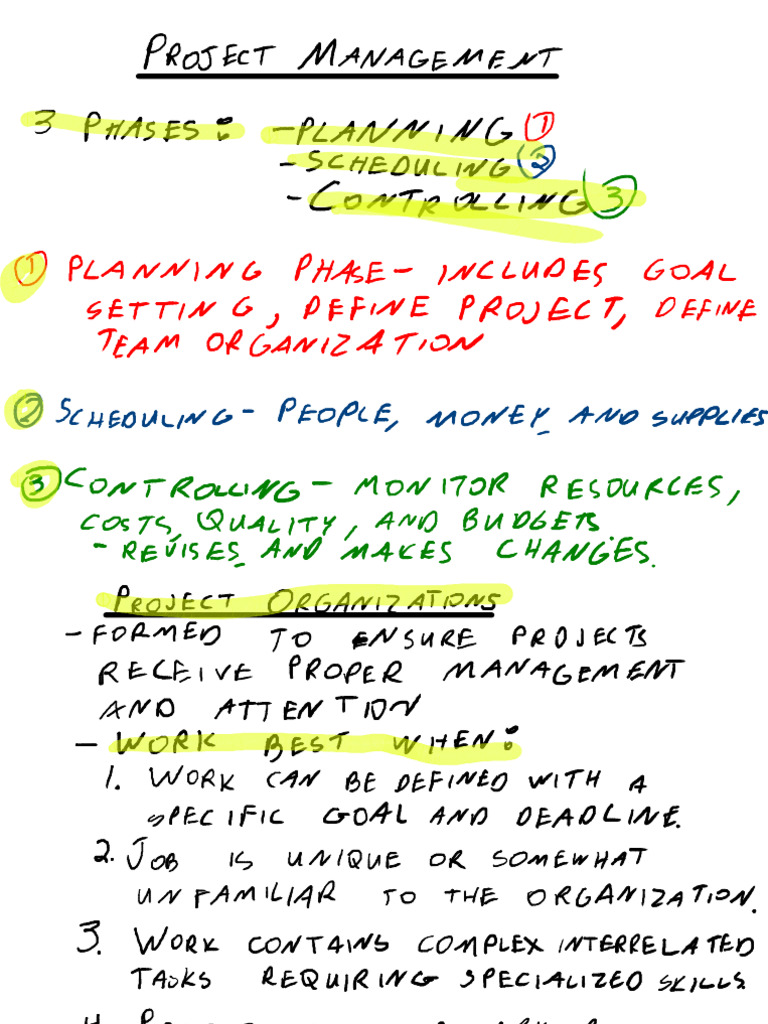 PROJECT MANAGEMENT
3 PHASES: - PLANNING 1
- SCHEDULING 2
- CONTROLLING 3
1 PLANNING PHASE - INCLUDES GOAL
SETTING, DEFINE PROJECT, DEFINE
TEAM ORGANIZATION
2 SCHEDULING - PEOPLE, MONEY, AND SUPPLIES
3 CONTROLLING - MONITOR RESOURCES,
COSTS, QUALITY, AND BUDGETS
- REVISES AND MAKES CHANGES.
PROJECT ORGANIZATIONS
- FORMED TO ENSURE PROJECTS
RECEIVE PROPER MANAGEMENT
AND ATTENTION
- WORK BEST WHEN:
1. WORK CAN BE DEFINED WITH A
SPECIFIC GOAL AND DEADLINE.
2. JOB IS UNIQUE OR SOMEWHAT
UNFAMILIAR TO THE ORGANIZATION.
3. WORK CONTAINS COMPLEX INTERRELATED
TASKS REQUIRING SPECIALIZED SKILLS
4.